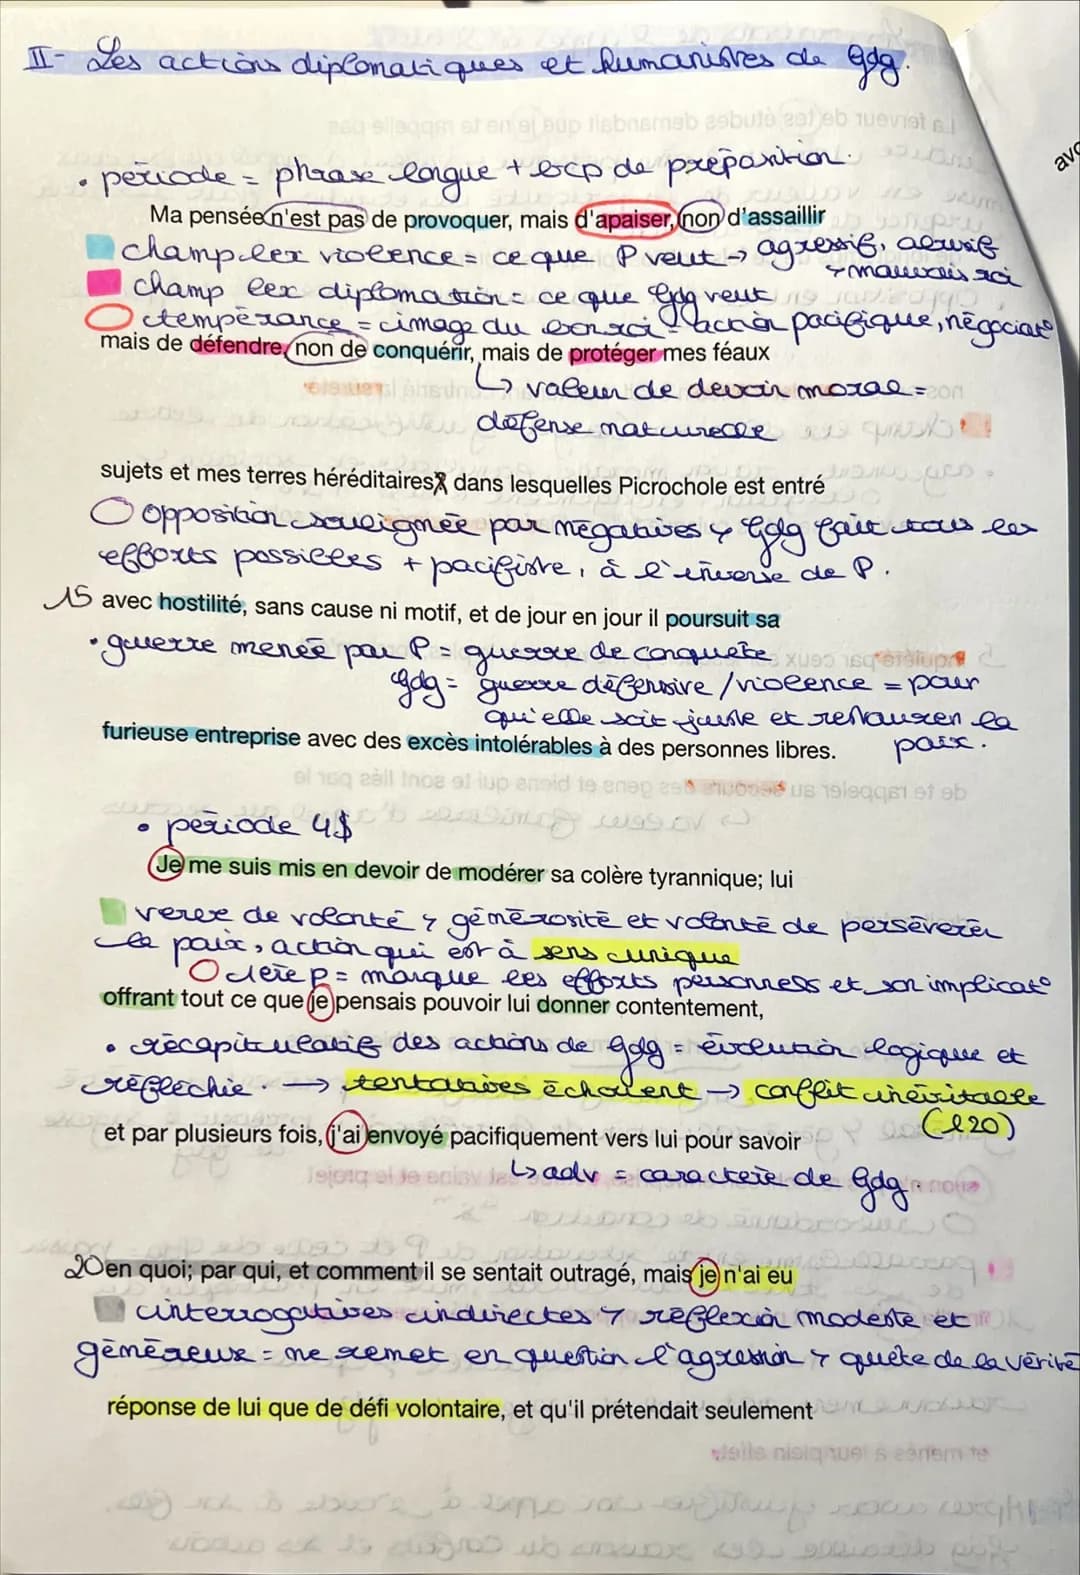 II- Les actions diplomatiques et humanistes de Gdg.
avc
• période = phrase longue + bcp de préposition.
Ma pensée n'est pas de provoquer, mais d'apaiser, non d'assaillir
champ lex violence = ce que P veut → agressif, abusif
→ mauvais roi
champ lex diplomation = ce que Gdg veut
tempérance = image du bon roi = action pacifique, négociat°
mais de défendre, non de conquérir, mais de protéger mes féaux
↳ valeur de devoir moral =
défense naturelle
sujets et mes terres héréditaires dans lesquelles Picrochole est entré
opposition soulignée par négatives → Gdg fait tous les
efforts possibles + pacifiste, à l'inverse de P.
15 avec hostilité, sans cause ni motif, et de jour en jour il poursuit sa
• guerre menée par P = guerre de conquête
Gdg = guerre défensive / violence = pour
qu'elle soit juste et restaurer la
furieuse entreprise avec des excès intolérables à des personnes libres.
paix.
• période 4$
Je me suis mis en devoir de modérer sa colère tyrannique; lui
verbe de volonté → générosité et volonté de persévérer
la paix, action qui est à sens unique
1ère p = marque les efforts personnels et son implicat°
offrant tout ce que je pensais pouvoir lui donner contentement,
• récapitulatif des actions de Gdg = évolution logique et
réfléchie. → tentatives échouent → conflit inévitable
(l20)
et par plusieurs fois, j'ai envoyé pacifiquement vers lui pour savoir
↳ adv = caractère de Gdg.
20 en quoi; par qui, et comment il se sentait outragé, mais je n'ai eu
interrogatives indirectes → réflexion modeste et
généreux = ne remet en question l'agression → quête de la vérité
réponse de lui que de défi volontaire, et qu'il prétendait seulement